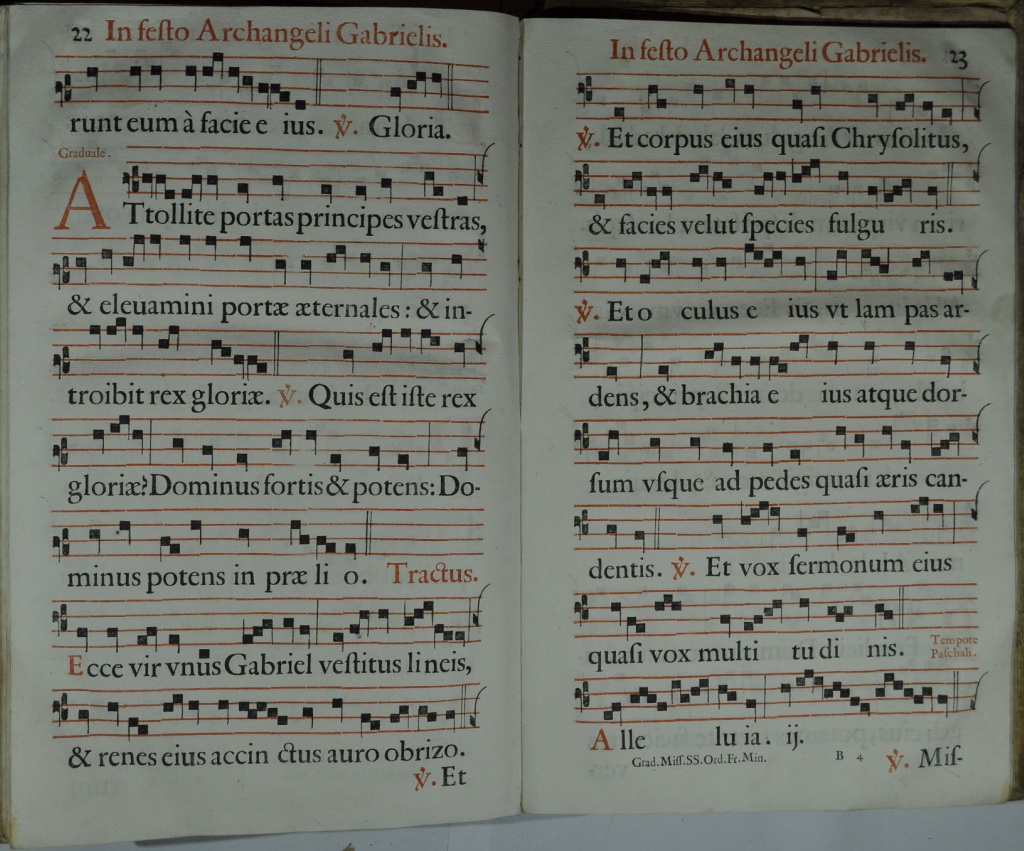 22 In feſto Archangeli Gabrielis.
runt eum à facie e ius. ℣. Gloria.
Graduale.
ATtollite portas principes veſtras,
& eleuamini portæ æternales : & in-
troibit rex gloriæ. ℣. Quis eſt iſte rex
gloriæ? Dominus fortis & potens: Do-
minus potens in præ li o. Tractus.
Ecce vir vnus Gabriel veſtitus li neis,
& renes eius accin ctus auro obrizo.
℣. Et
In feſto Archangeli Gabrielis. 23
℣. Et corpus eius quaſi Chryſolitus,
& facies velut ſpecies fulgu ris.
℣. Et o culus e ius vt lam pas ar-
dens, & brachia e ius atque dor-
ſum vſque ad pedes quaſi æris can-
dentis. ℣. Et vox ſermonum eius
quaſi vox multi tu di nis.
Tempore
Paſchali.
A lle lu ia. ij.
Grad. Miſſ. SS. Ord. Fr. Min. B 4
℣. Miſ-